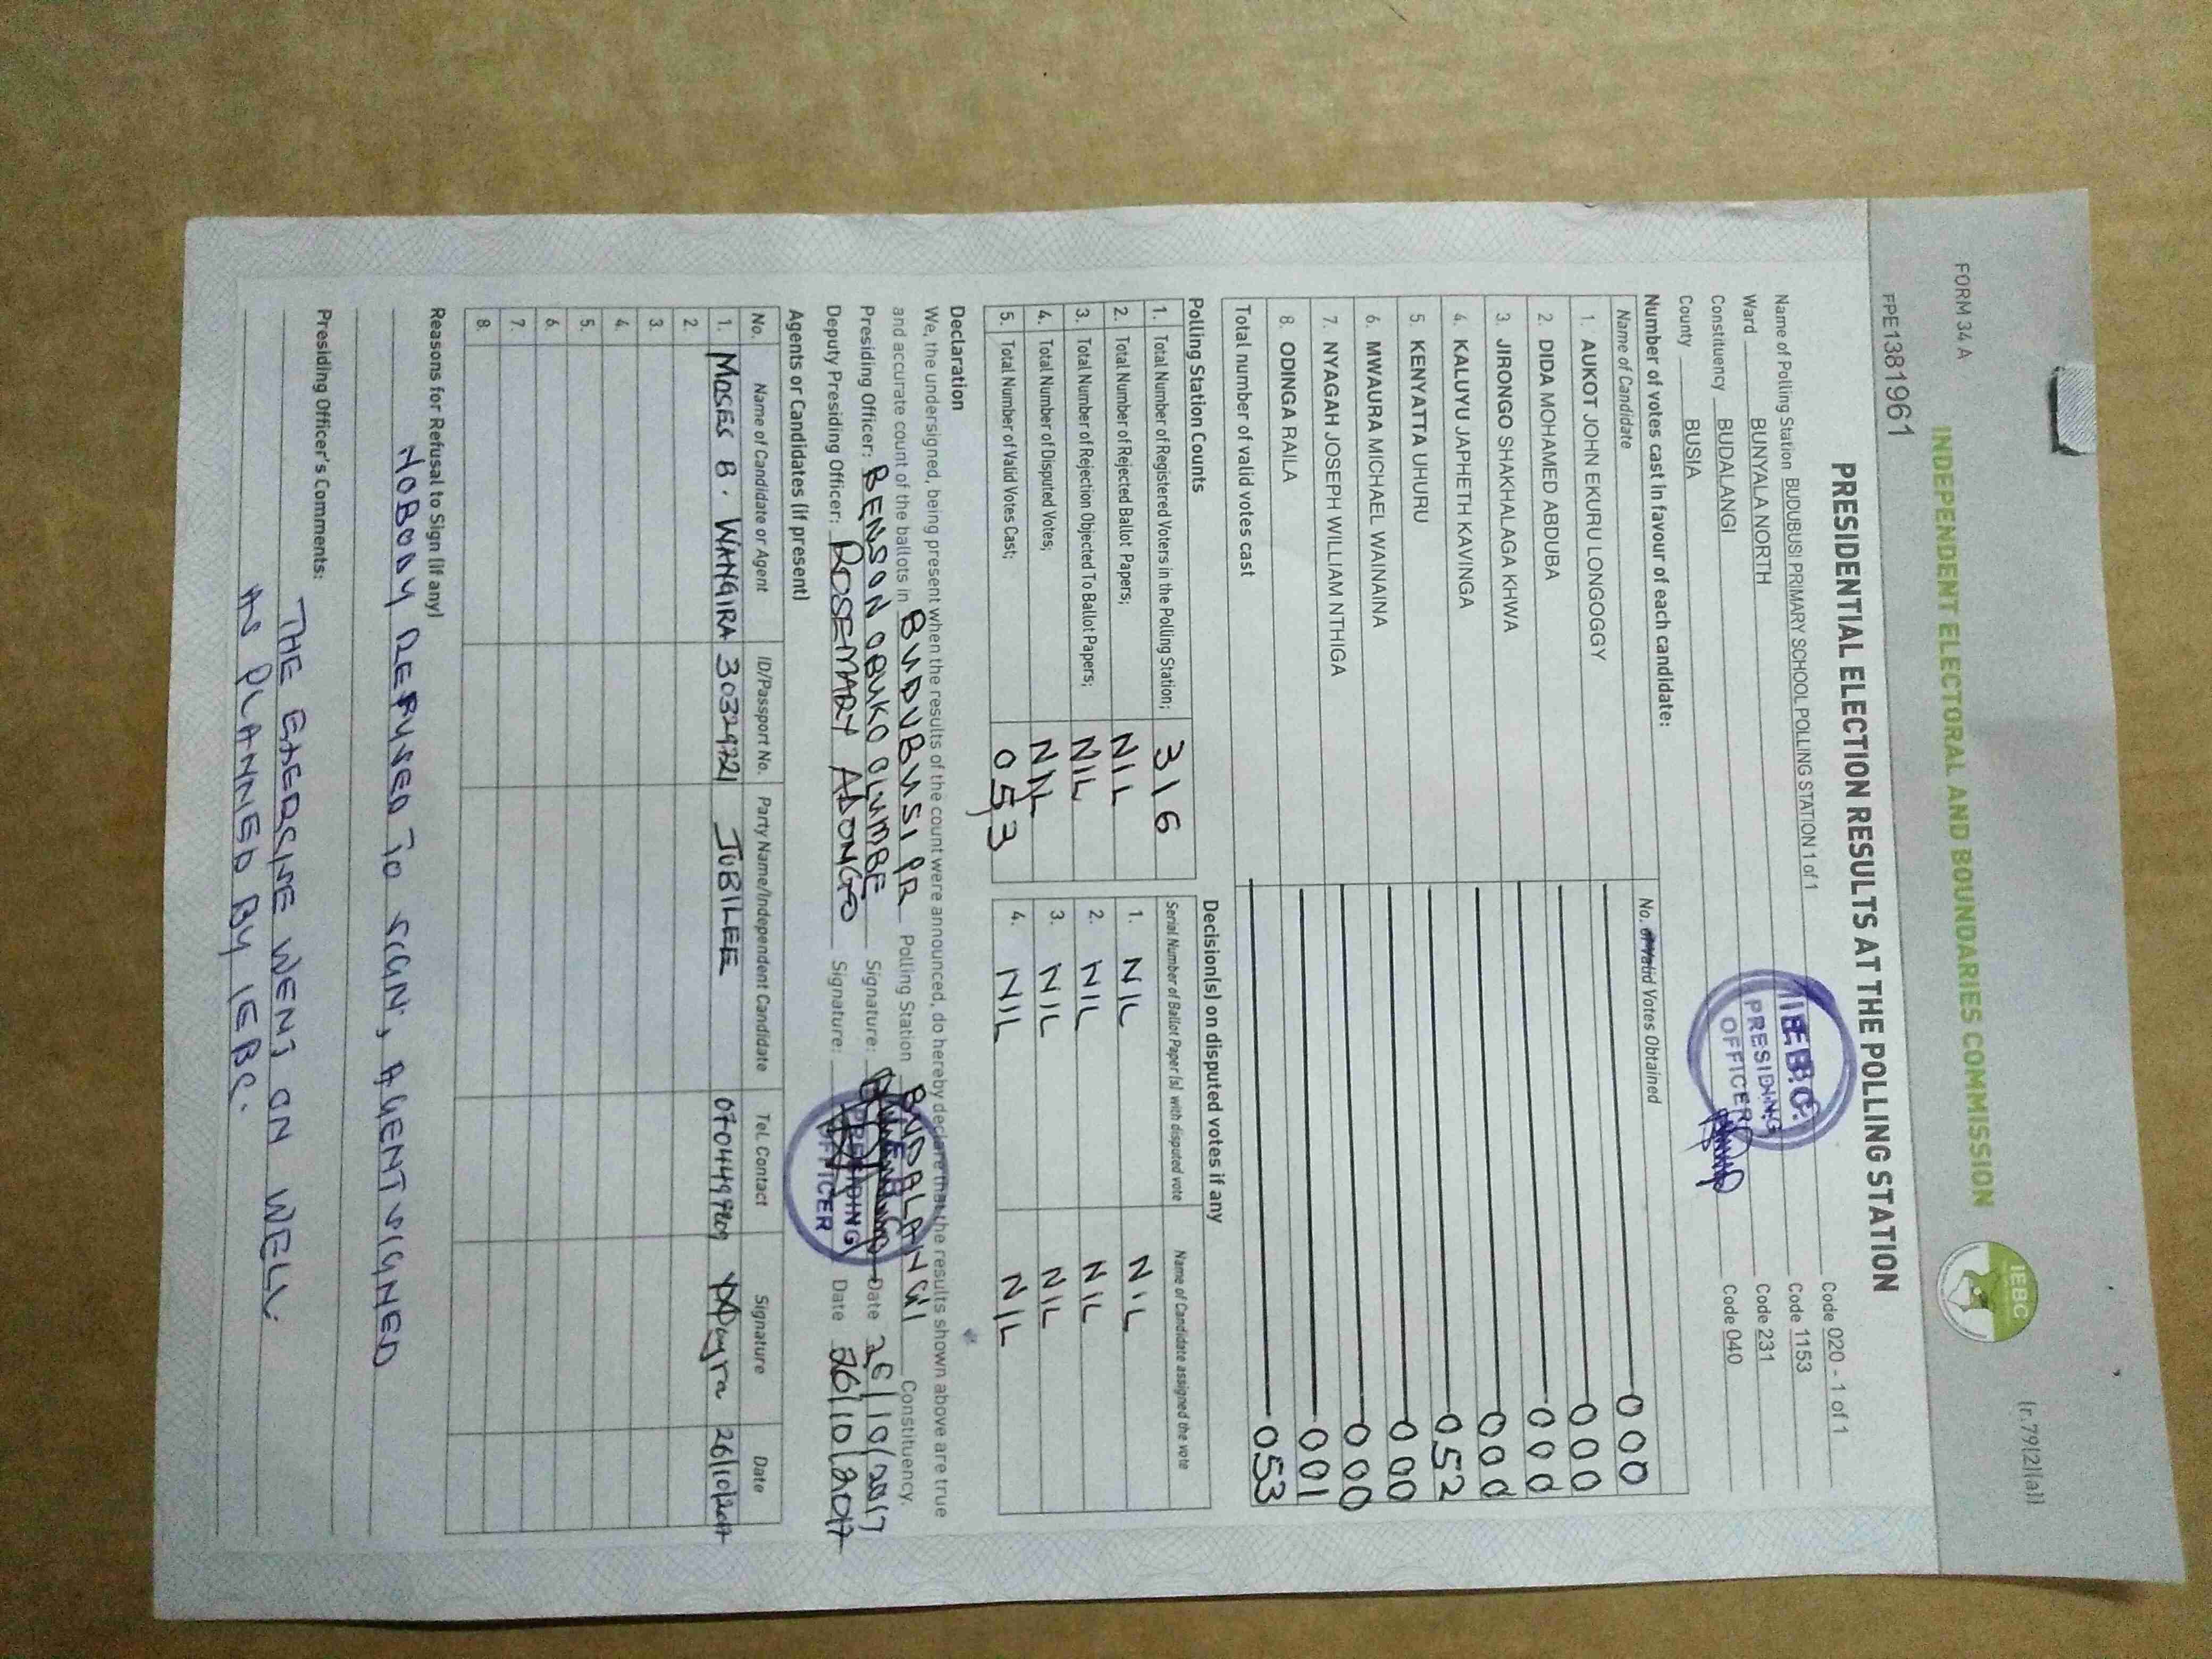 FORM 34 A
(r.79(2)(a))
INDEPENDENT ELECTORAL AND BOUNDARIES COMMISSION
IEBC
FPE1381961
PRESIDENTIAL ELECTION RESULTS AT THE POLLING STATION
Name of Polling Station BUDUBUSI PRIMARY SCHOOL POLLING STATION 1 of 1 Code 020 - 1 of 1
Ward BUNYALA NORTH Code 1153
Constituency BUDALANGI Code 231
County BUSIA Code 040
I.E.B.C.
PRESIDING
OFFICER
Number of votes cast in favour of each candidate:
Name of Candidate No. of Valid Votes Obtained
1. AUKOT JOHN EKURU LONGOGGY 000
2. DIDA MOHAMED ABDUBA 000
3. JIRONGO SHAKHALAGA KHWA 000
4. KALUYU JAPHETH KAVINGA 000
5. KENYATTA UHURU 052
6. MWAURA MICHAEL WAINAINA 000
7. NYAGAH JOSEPH WILLIAM NTHIGA 000
8. ODINGA RAILA 001
Total number of valid votes cast 053
Polling Station Counts
1. Total Number of Registered Voters in the Polling Station; 316
2. Total Number of Rejected Ballot Papers; NIL
3. Total Number of Rejection Objected To Ballot Papers; NIL
4. Total Number of Disputed Votes; NIL
5. Total Number of Valid Votes Cast; 053
Decision(s) on disputed votes if any
Serial Number of Ballot Paper (s) with disputed vote Name of Candidate assigned the vote
1. NIL NIL
2. NIL NIL
3. NIL NIL
4. NIL NIL
Declaration
We, the undersigned, being present when the results of the count were announced, do hereby declare that the results shown above are true
and accurate count of the ballots in BUDUBUSI PR Polling Station BUDALANGI Constituency.
Presiding Officer: BENSON OBUKO OLUMBE Signature: Date 26/10/2017
Deputy Presiding Officer: ROSEMARY ADONGO Signature: Date 26/10/2017
PRESIDING
OFFICER
Agents or Candidates (if present)
No. Name of Candidate or Agent ID/Passport No. Party Name/Independent Candidate Tel. Contact Signature Date
1. MOSES B. WANGIRA 30329721 JUBILEE 26/10/2017
2.
3.
4.
5.
6.
7.
8.
Reasons for Refusal to Sign (if any)
NOBODY REFUSED TO SIGN, AGENT SIGNED
Presiding Officer's Comments:
THE EXERCISE WENT ON WELL
AS PLANNED BY IEBC.